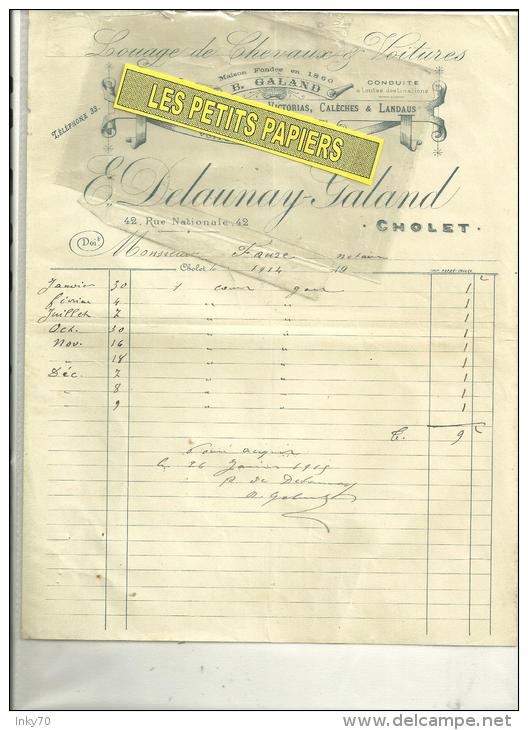 Louage de Chevaux & Voitures
Maison Fondée en 1860
B. GALAND
CONDUITE
à toutes destinations
Victorias, Calèches & Landaus
LES PETITS PAPIERS
Téléphone 33.
E. Delaunay-Galand
42, Rue Nationale, 42
CHOLET.
Doit Monsieur Faure notaire
Cholet le 1914 19
Janvier 30 1 course gare 1
février 4 " " 1
Juillet 7 " " 1
Oct. 30 " " 1
Nov. 16 " " 1
" 18 " " 1
Déc. 7 " " 1
" 8 " " 1
" 9 " " 1
T. 9
Pour acquit
le 26 Janvier 1915
P. de Delaunay
Inky70
delcampe.net